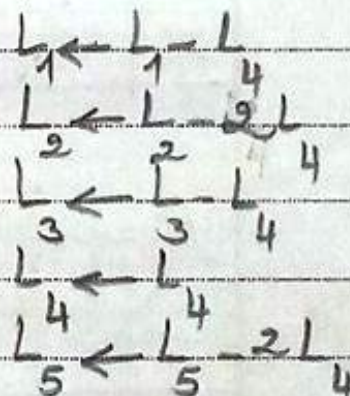 L₁ ← L₁ - L₄
L₂ ← L₂ - 2L₄
L₃ ← L₃ - L₄
L₄ ← L₄
L₅ ← L₅ - 2L₄